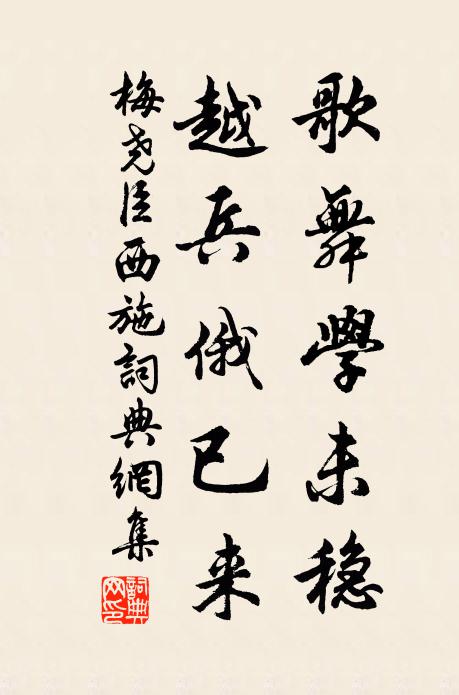 歌舞學未穏
越兵俄已来
梅堯臣西施詞典網集
詞典網印